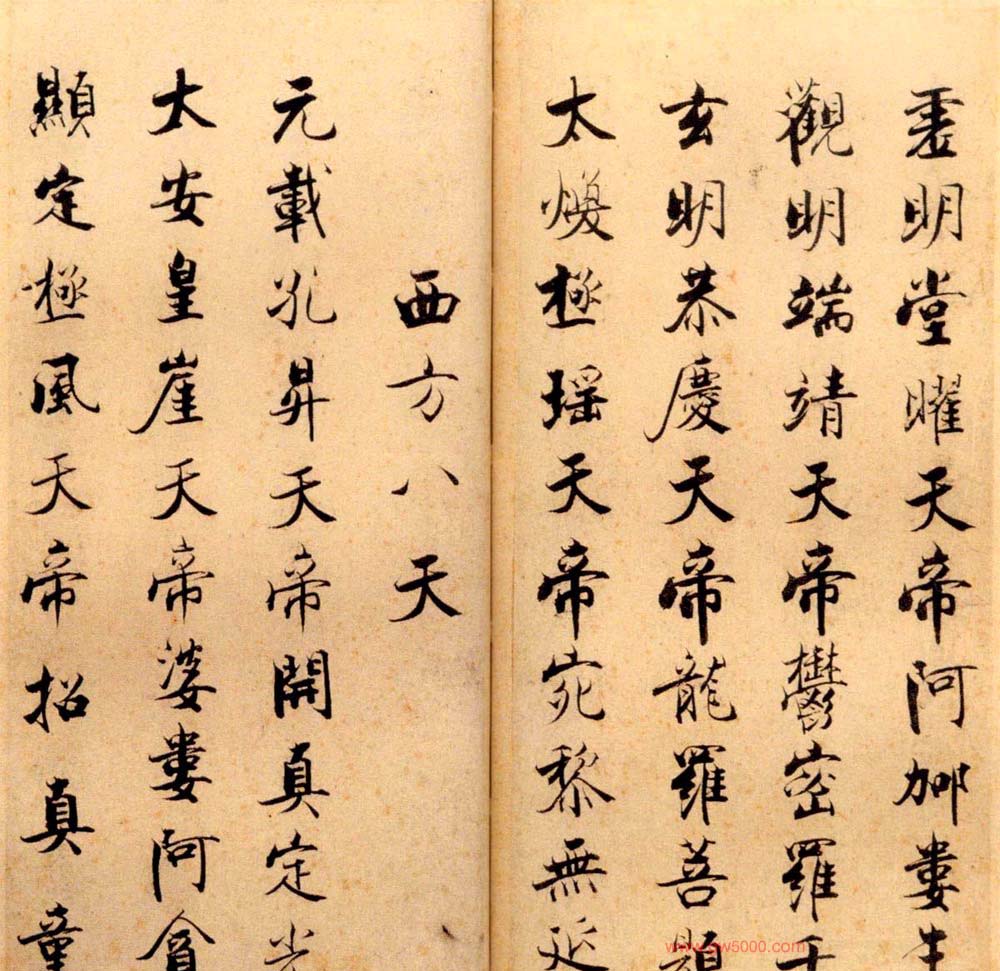 虛明堂曜天帝阿䢔婁生
觀明端靖天帝鬱密羅千
玄明恭慶天帝龍羅菩
太煥極瑤天帝宛黎無延
西方八天
元載孔昇天帝開真定光
太安皇崖天帝婆婁阿貪
顯定極風天帝招真童
www.yw5000.com